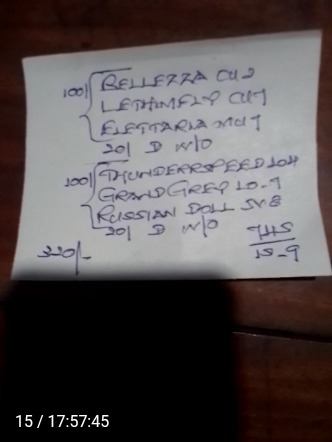 100/ BELLEZZA CU 2
LETHIMFLY CU 7
ELETTARIA MU 7
20/ D W/O
100/ THUNDERRSPEED LO4
GRAND GREY LO-9
RUSSIAN DOLL SV 8
20/ D W/O
320/-
THS
15-9
15 / 17:57:45